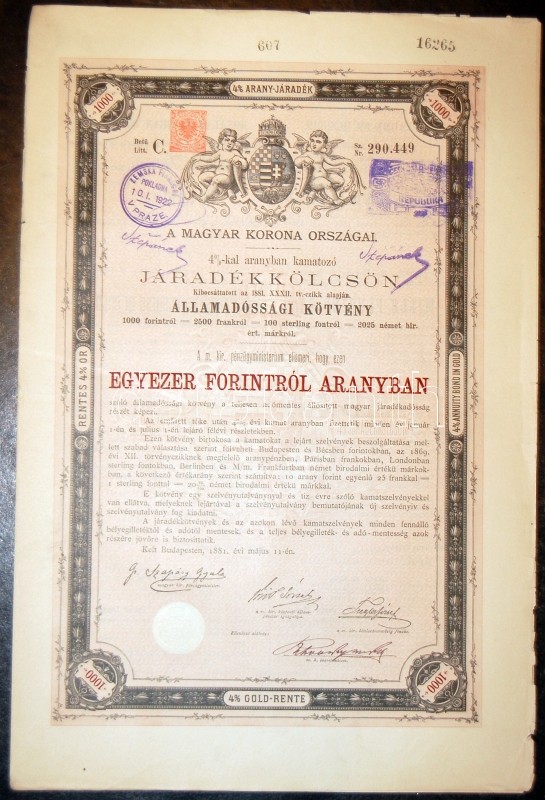 607 16265
4% ARANY-JÁRADÉK
1000 1000
Betű Litt. C.
Sz. Nr. 290.449
ZEMSKÁ
POKLADNA
10. I. 1922
V PRAZE
Štěpánek Štěpánek
A MAGYAR KORONA ORSZÁGAI.
4%-kal aranyban kamatozó
JÁRADÉKKÖLCSÖN
Kibocsáttatott az 1881. XXXII. tv.-czikk alapján.
ÁLLAMADÓSSÁGI KÖTVÉNY
1000 forintról — 2500 frankról — 100 sterling fontról — 2025 német bir.
ért. márkról.
A m. kir. pénzügyministerium elismeri, hogy ezen
EGYEZER FORINTRÓL ARANYBAN
szóló államadóssági kötvény a teljesen névmentes állósított magyar járadékadósság
részét képezi.
Az érintett tőke után 4% évi kamat aranyban fizettetik minden évi január
1-én és julius 1-én lejáró félévi részletekben.
Ezen kötvény birtokosa a kamatokat a lejárt szelvények beszolgáltatása mel-
lett szabad választása szerint fölveheti Budapesten és Bécsben forintokban, az 1869.
évi XII. törvényczikknek megfelelő aranypénzben, Párisban frankokban, Londonban
sterling fontokban, Berlinben és M/m. Frankfurtban német birodalmi értékü márkok-
ban, a következő értékarány szerint számitva: 10 arany forint egyenlő 25 frankkal —
1 sterling fonttal — német birodalmi értékü márkkal.
E kötvény egy szelvényutalványnyal és tiz évre szóló kamatszelvényekkel
van ellátva, melyeknek lejártával a szelvényutalvány bemutatójának új szelvényiv és
szelvényutalvány fog kiadatni.
A járadékkötvények és az azokon lévő kamatszelvények minden fennálló
bélyegilletéktől és adótól mentesek, és a teljes bélyegilleték- és adó-mentesség azok
részére jövőre is biztosittatik.
Kelt Budapesten, 1881. évi május 11-én.
Gr. Szapáry Gyula
RENTES 4% OR
4% ANNUITY BOND IN GOLD
1000 1000
4% GOLD-RENTE